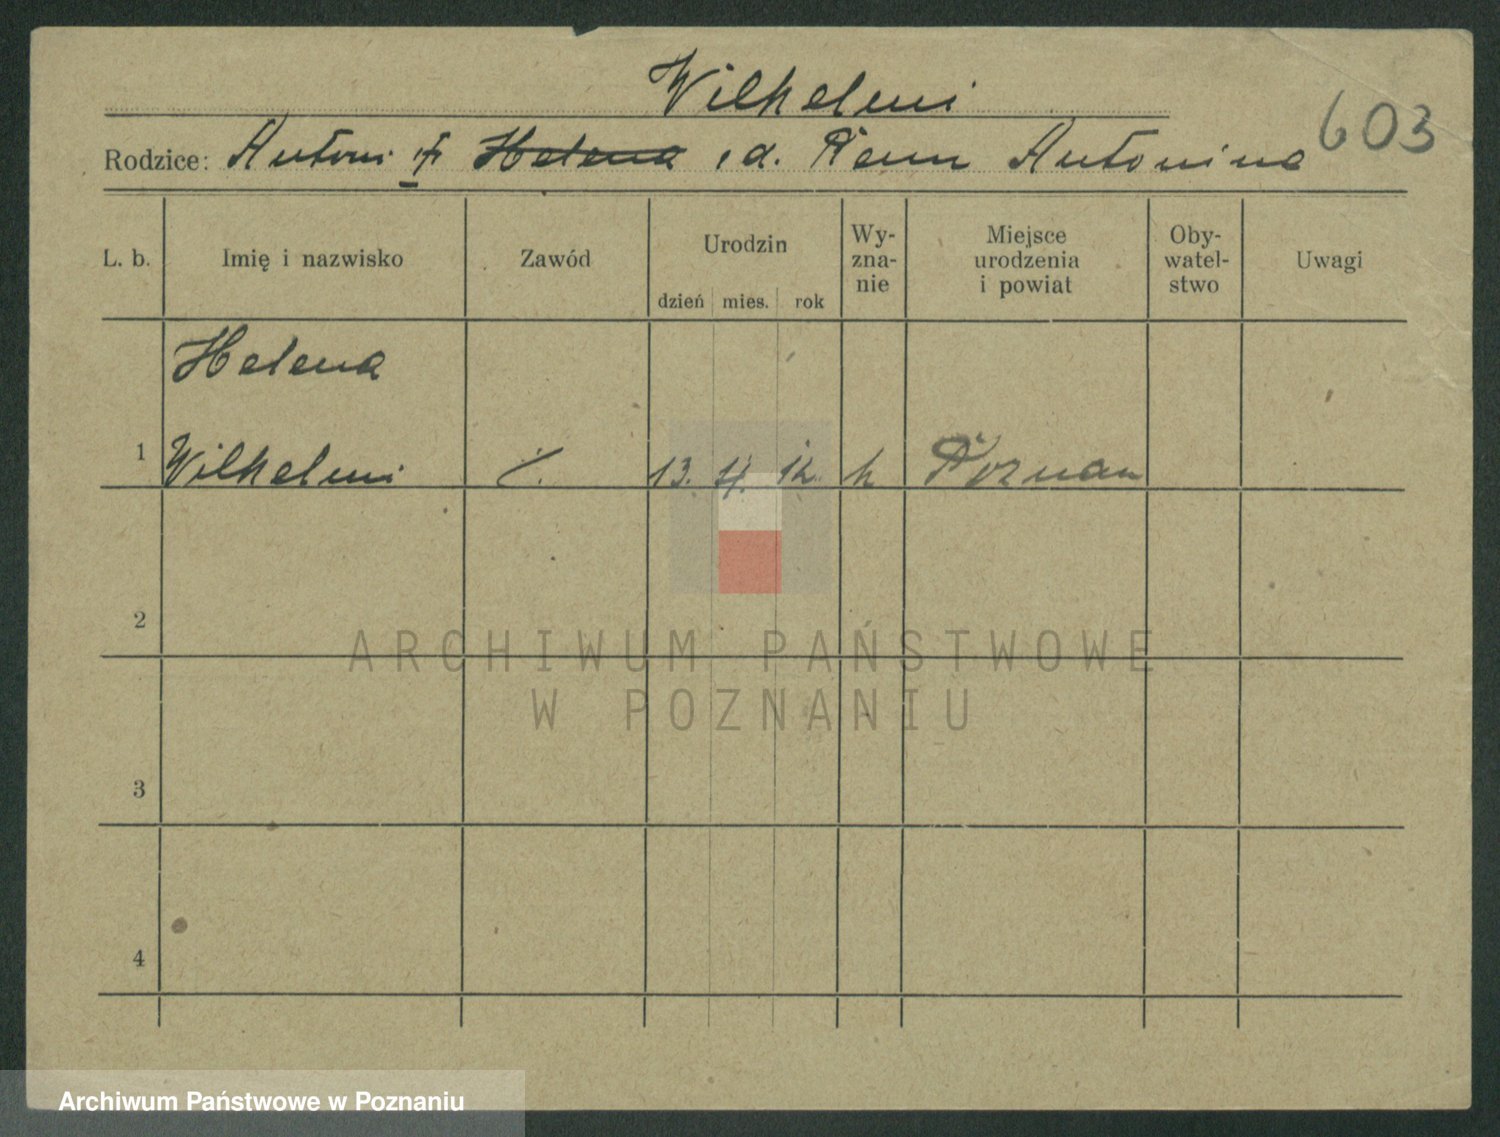 Wilhelmi
603
Rodzice: Antoni i Helena , d. Antonina
L. b. Imię i nazwisko Zawód Urodzin dzień mies. rok Wy-zna-nie Miejsce urodzenia i powiat Oby-watel-stwo Uwagi
Helena
1 Wilhelmi 13. 4. 12. k Poznan
2
ARCHIWUM PAŃSTWOWE
W POZNANIU
3
4
Archiwum Państwowe w Poznaniu